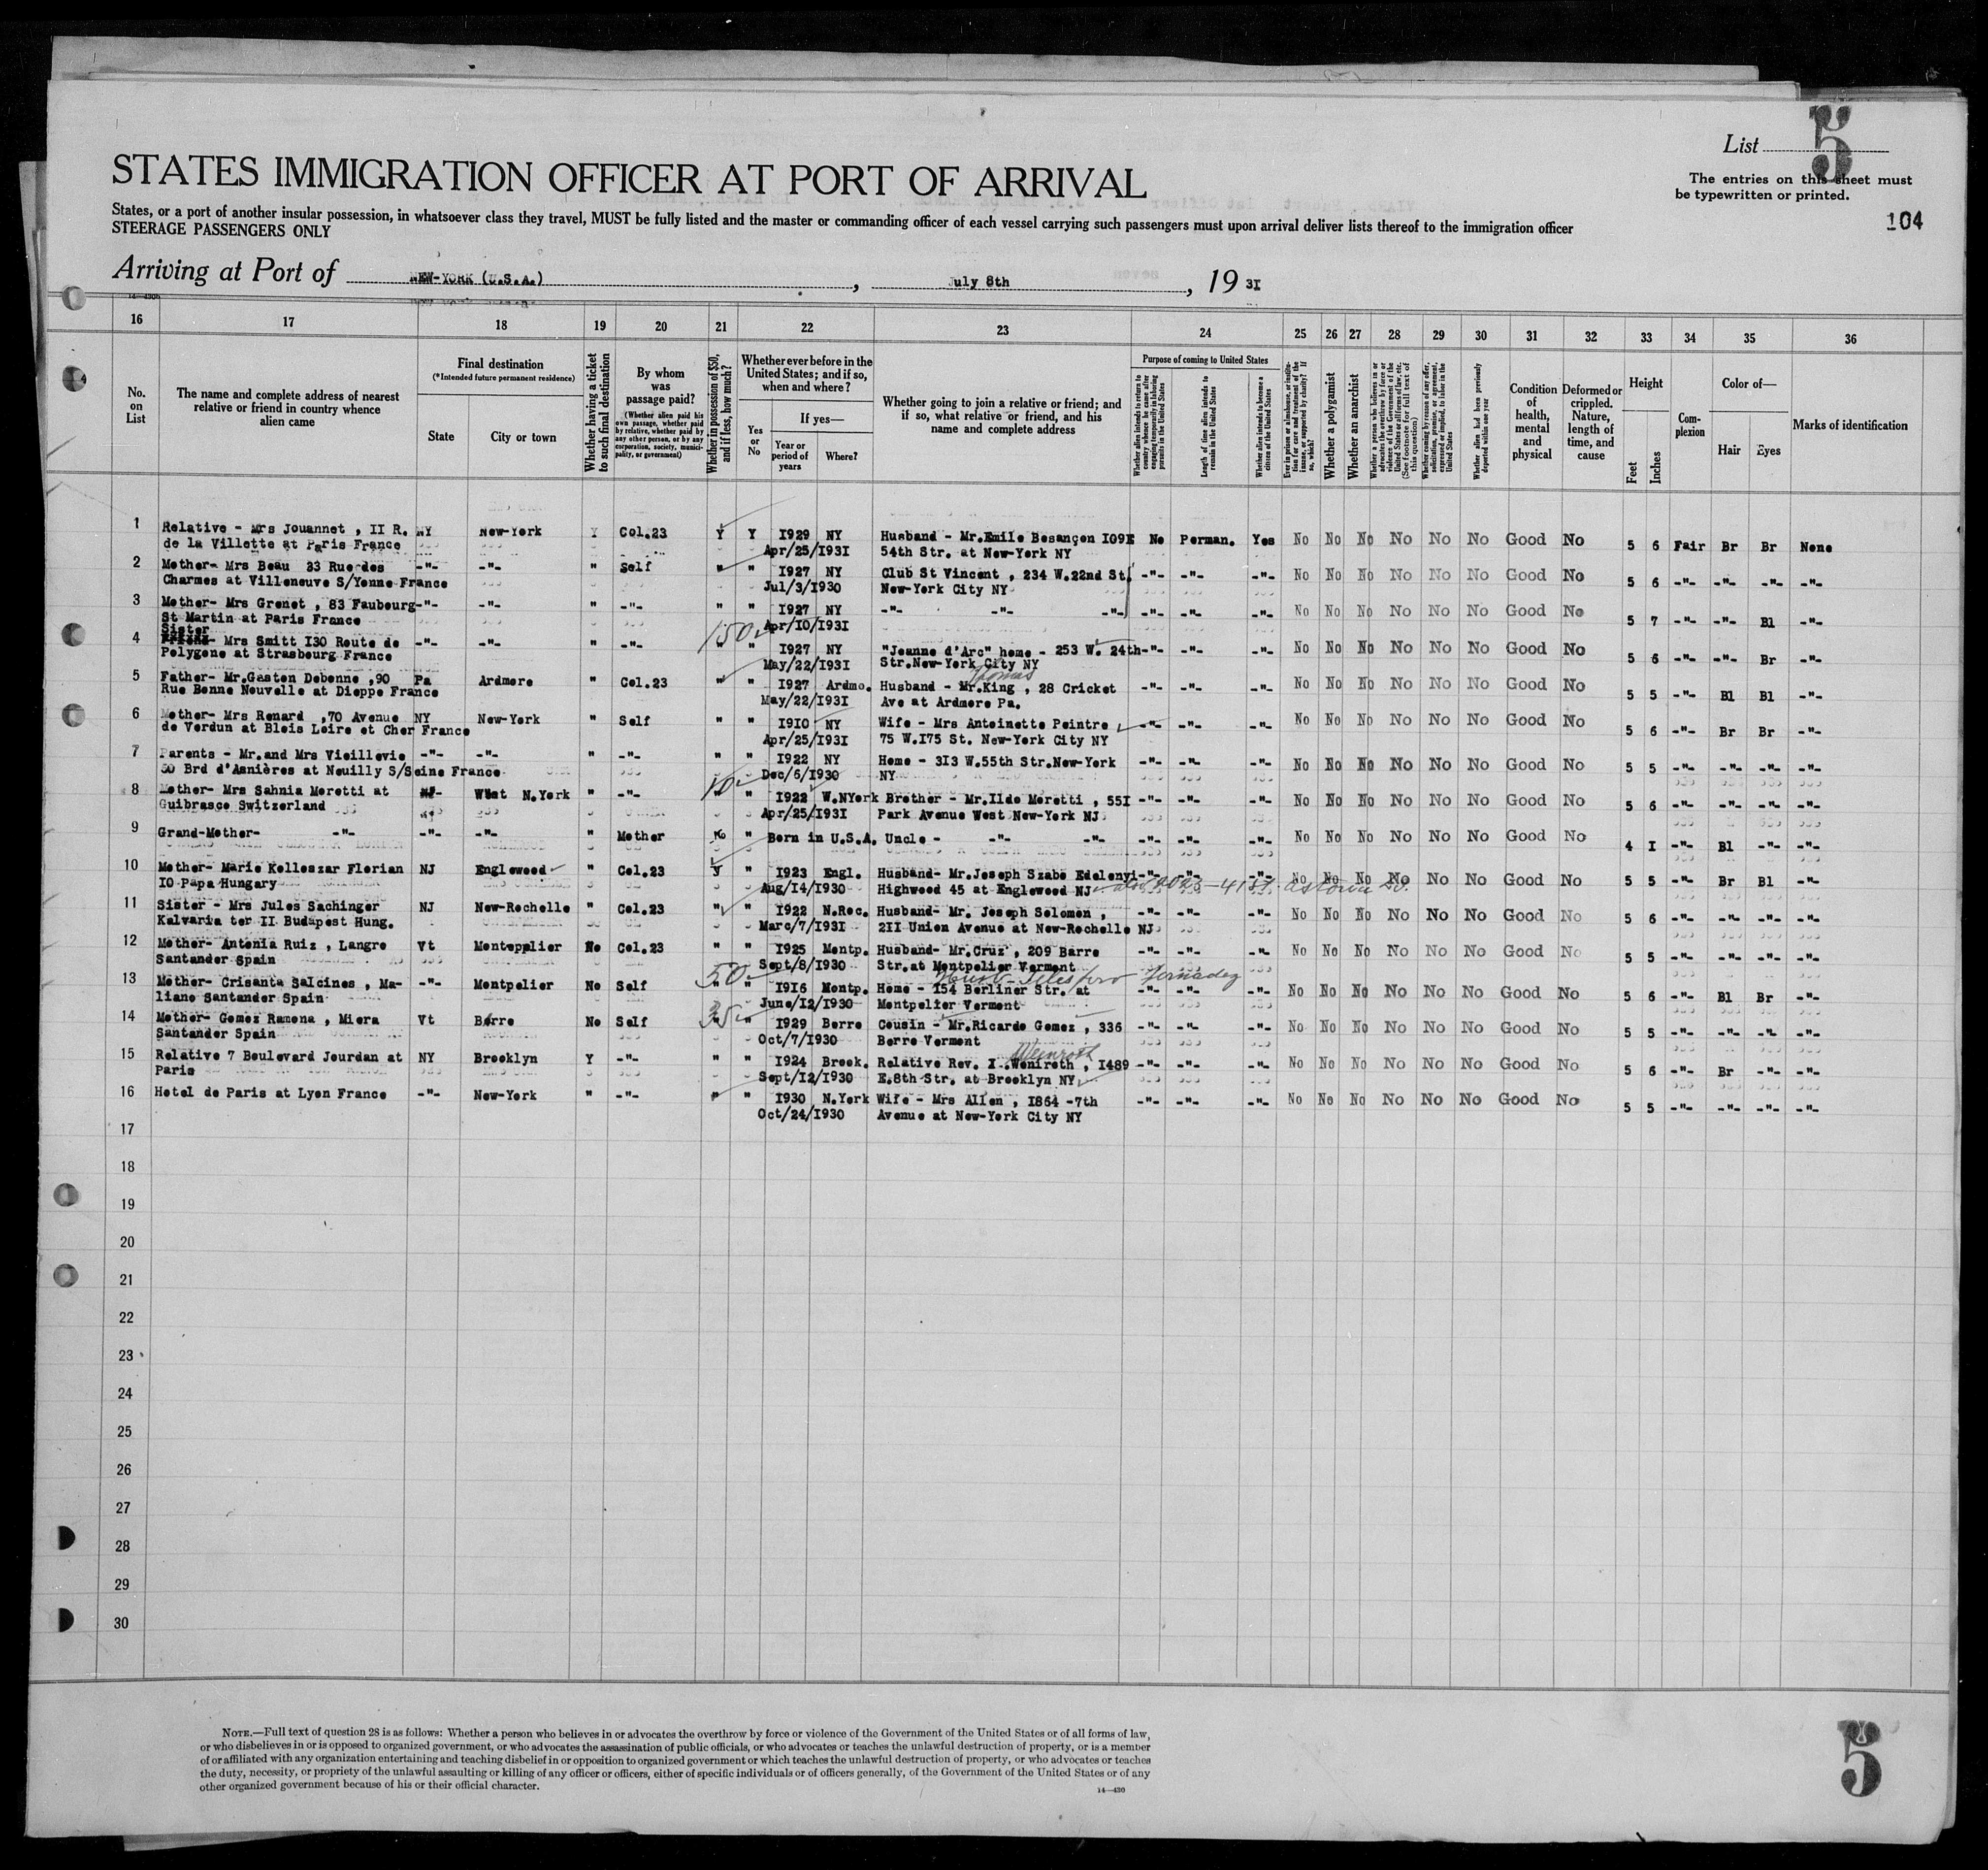 List 5
The entries on this sheet must
be typewritten or printed.
104
STATES IMMIGRATION OFFICER AT PORT OF ARRIVAL
States, or a port of another insular possession, in whatsoever class they travel, MUST be fully listed and the master or commanding officer of each vessel carrying such passengers must upon arrival deliver lists thereof to the immigration officer
STEERAGE PASSENGERS ONLY
Arriving at Port of NEW-YORK (U.S.A.) , July 8th , 19 3I
16 17 18 19 20 21 22 23 24 25 26 27 28 29 30 31 32 33 34 35 36
No. on List
The name and complete address of nearest relative or friend in country whence alien came
Final destination
(*Intended future permanent residence)
State City or town
Whether having a ticket to such final destination
By whom was passage paid?
(Whether alien paid his own passage, whether paid by relative, whether paid by any other person, or by any corporation, society, municipality, or government)
Whether in possession of $50, and if less, how much?
Whether ever before in the United States; and if so, when and where?
Yes or No
If yes—
Year or period of years
Where?
Whether going to join a relative or friend; and if so, what relative or friend, and his name and complete address
Purpose of coming to United States
Whether alien intends to return to country whence he came after engaging temporarily in laboring pursuits in the United States
Length of time alien intends to remain in the United States
Whether alien intends to become a citizen of the United States
Ever in prison or almshouse, or institution for care and treatment of the insane, or supported by charity? If so, which?
Whether a polygamist
Whether an anarchist
Whether a person who believes in or advocates the overthrow by force or violence of the Government of the United States or all forms of law, etc. (See footnote for full text of this question)
Whether coming by reason of any offer, solicitation, promise, or agreement, expressed or implied, to labor in the United States
Whether alien had been previously deported within one year
Condition of health, mental and physical
Deformed or crippled. Nature, length of time, and cause
Height
Feet Inches
Complexion
Color of—
Hair Eyes
Marks of identification
1 Relative - Mrs Jouannet , II R. NY New-York Y Col.23 Y Y I929 NY Husband - Mr.Emile Besançon I09E No Perman. Yes No No No No No No Good No 5 6 Fair Br Br None
de la Villette at Paris France Apr/25/I93I 54th Str. at New-York NY
2 Mother- Mrs Beau 33 Rue des -"- -"- " Self " " I927 NY Club St Vincent , 234 W.22nd St. -"- -"- -"- No No No No No No Good No 5 6 -"- -"- -"- -"-
Charmes at Villeneuve S/Yonne France Jul/3/I930 New-York City NY
3 Mother- Mrs Grenet , 83 Faubourg -"- -"- " -"- " " I927 NY -"- -"- -"- -"- -"- -"- No No No No No No Good No 5 7 -"- -"- Bl -"-
St Martin at Paris France Apr/I0/I93I
Sister
4 Mrs Smitt I30 Route de -"- -"- " -"- 150 " " I927 NY "Jeanne d'Arc" home - 253 W. 24th -"- -"- -"- No No No No No No Good No 5 6 -"- -"- Br -"-
Polygone at Strasbourg France May/22/I93I Str.New-York City NY
Thomas
5 Father- Mr.Gaston Debonne ,90 Pa Ardmore " Col.23 " " I927 Ardmo. Husband - Mr.King , 28 Cricket -"- -"- -"- No No No No No No Good No 5 5 -"- Bl Bl -"-
Rue Bonne Nouvelle at Dieppe France May/22/I93I Ave at Ardmore Pa.
6 Mother- Mrs Renard ,70 Avenue NY New-York " Self " " I9I0 NY Wife - Mrs Antoinette Peintre -"- -"- -"- No No No No No No Good No 5 6 -"- Br Br -"-
de Verdun at Blois Loire et Cher France Apr/25/I93I 75 W.I75 St. New-York City NY
7 Parents - Mr.and Mrs Vieillevie -"- -"- " -"- " " I922 NY Home - 3I3 W.55th Str.New-York -"- -"- -"- No No No No No No Good No 5 5 -"- -"- -"- -"-
50 Brd d'Asnières at Neuilly S/Seine France Dec/6/I930 NY
8 Mother- Mrs Sahnia Moretti at West N.York " -"- 10 " " I922 W.NYork Brother - Mr.Ildo Moretti , 55I -"- -"- -"- No No No No No No Good No 5 6 -"- -"- -"- -"-
Guibrasco Switzerland Apr/25/I93I Park Avenue West New-York NJ
9 Grand-Mother- -"- -"- -"- " Mother No " Born in U.S.A. Uncle - -"- -"- -"- -"- -"- No No No No No No Good No 4 I -"- Bl -"- -"-
10 Mother- Marie Kelleszar Florian NJ Englewood " Col.23 Y " I923 Engl. Husband- Mr.Joseph Szabo Edelenyi -"- -"- -"- No No No No No No Good No 5 5 -"- Br Bl -"-
I0 Papa Hungary Aug/I4/I930 Highwood 45 at Englewood NJ
11 Sister - Mrs Jules Sachinger NJ New-Rochelle " Col.23 " " I922 N.Roc. Husband- Mr. Joseph Solomon , -"- -"- -"- No No No No No No Good No 5 6 -"- -"- -"- -"-
Kalvaria ter II Budapest Hung. Marc/7/I93I 2II Union Avenue at New-Rochelle NJ
12 Mother- Antonia Ruiz , Langre Vt Montepplier No Col.23 " " I925 Montp. Husband- Mr.Cruz , 209 Barre -"- -"- -"- No No No No No No Good No 5 5 -"- -"- -"- -"-
Santander Spain Sept/8/I930 Str.at Montpelier Vermont
13 Mother- Crisanta Salcines , Ma- -"- Montpelier No Self 50 " " I9I6 Montp. Home - I54 Berliner Str. at -"- -"- -"- No No No No No No Good No 5 6 -"- Bl Br -"-
liano Santander Spain June/I2/I930 Montpelier Vermont
14 Mother- Gomez Ramona , Miera Vt Barre No Self 35 " " I929 Berre Cousin - Mr.Ricardo Gomez , 336 -"- -"- -"- No No No No No No Good No 5 5 -"- -"- -"- -"-
Santander Spain Oct/7/I930 Berre Vermont
Weinroth
15 Relative 7 Boulevard Jourdan at NY Brooklyn Y -"- " " I924 Brook. Relative Rev. I .Wenireth , I489 -"- -"- -"- No No No No No No Good No 5 6 -"- Br -"- -"-
Paris Sept/I2/I930 E.8th Str. at Brooklyn NY
16 Hotel de Paris at Lyon France -"- New-York " -"- " " I930 N.York Wife - Mrs Allen , I864 -7th -"- -"- -"- No No No No No No Good No 5 5 -"- -"- -"- -"-
Oct/24/I930 Avenue at New-York City NY
17
18
19
20
21
22
23
24
25
26
27
28
29
30
NOTE.—Full text of question 28 is as follows: Whether a person who believes in or advocates the overthrow by force or violence of the Government of the United States or of all forms of law,
or who disbelieves in or is opposed to organized government, or who advocates the assassination of public officials, or who advocates or teaches the unlawful destruction of property, or is a member
of or affiliated with any organization entertaining and teaching disbelief in or opposition to organized government or which teaches the unlawful destruction of property, or who advocates or teaches
the duty, necessity, or propriety of the unlawful assaulting or killing of any officer or officers, either of specific individuals or of officers generally, of the Government of the United States or of any
other organized government because of his or their official character.
14—430
5